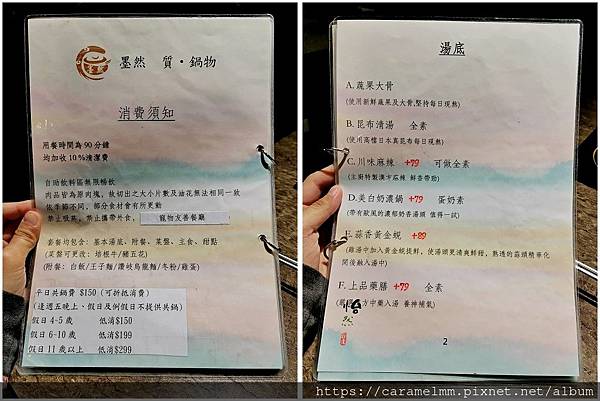 墨然 質・鍋物
消費須知
用餐時間為90分鐘
均加收10%清潔費
自助飲料區無限暢飲
肉品皆為原肉塊，故切出之大小片數及油花無法相同一致
依季節不同，部分食材會有所更動
禁止吸菸，禁止攜帶外食，寵物友善餐廳
套餐均包含：基本湯底、附餐、菜盤、主食、甜點
(菜盤可更改：培根牛/豬五花)
(附餐：白飯/王子麵/讚岐烏龍麵/冬粉/雞蛋)
平日共鍋費 $150 (可折抵消費)
(逢週五晚上、假日及例假日不提供共鍋)
假日 4-5 歲 低消$150
假日 6-10 歲 低消$199
假日 11 歲以上 低消$299
湯底
A.蔬果大骨
(使用新鮮蔬果及大骨,堅持每日現熬)
B.昆布清湯 全素
(使用高檔日本真昆布每日現熬)
C.川味麻辣 +79 可做全素
(主廚特製漢方麻辣 鮮香帶勁)
D.美白奶濃鍋 +79 蛋奶素
(帶有歐風的濃郁奶香湯頭 值得一試)
E.蒜香黃金蜆 +89
(雞湯中加入黃金蜆提鮮，使湯頭更清爽鮮甜，熟透的蒜頭精華化
開後融入湯中)
F.上品藥膳 +79 全素
方中藥入湯 養神補氣)
2
https://caramelmm.pixnet.net/album